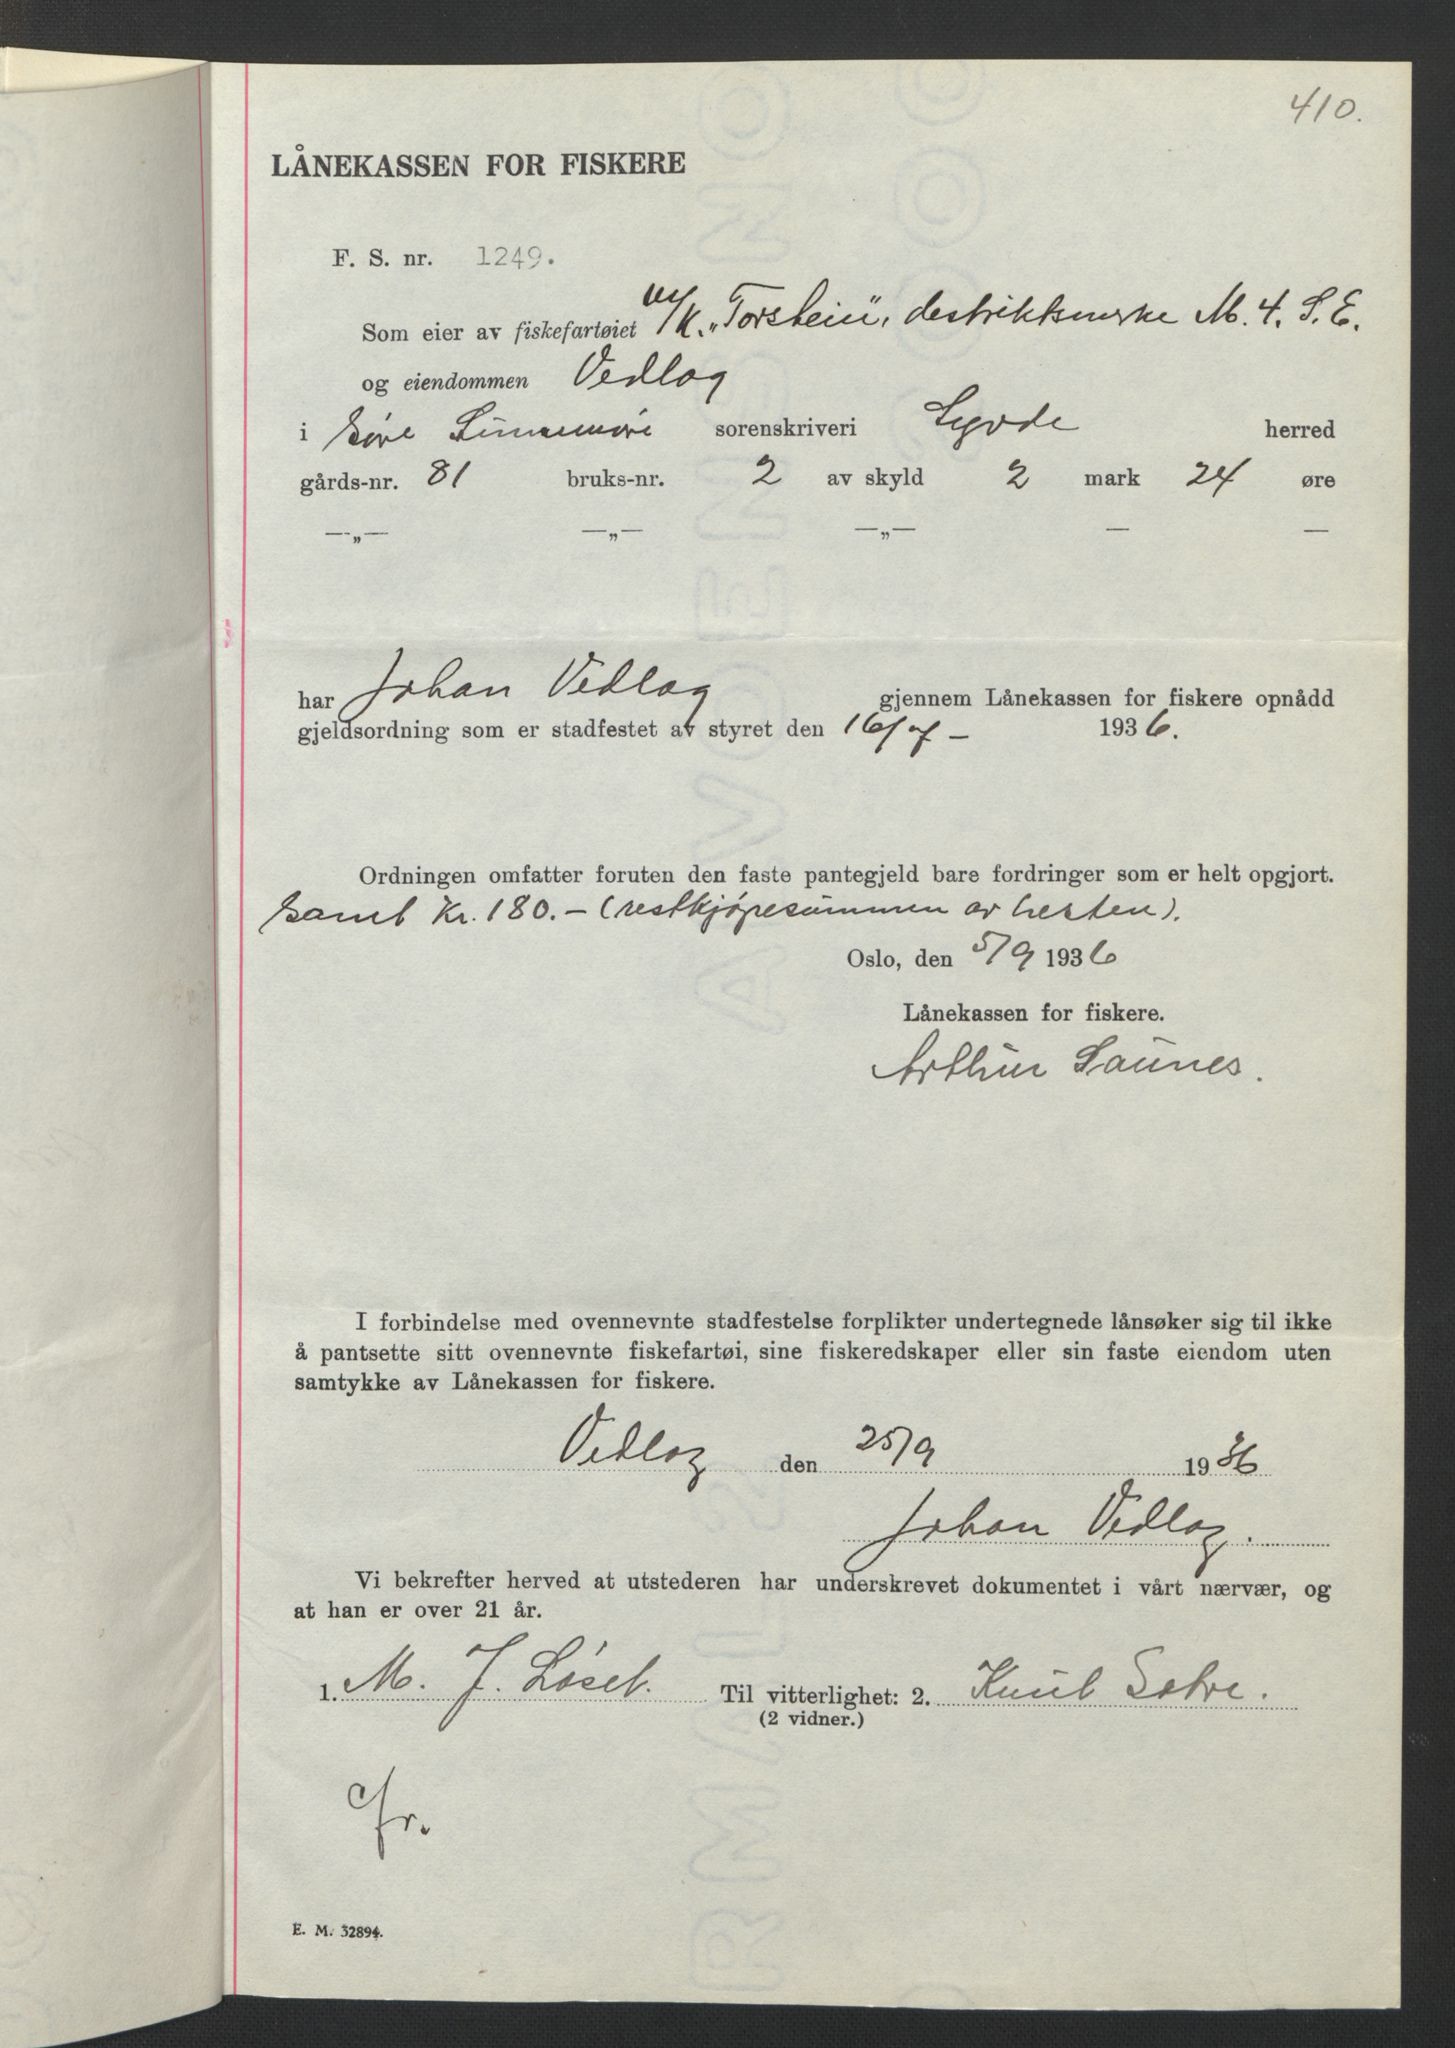 410.
LÅNEKASSEN FOR FISKERE
F. S. nr. 1249.
Som eier av fiskefartøiet M/K. „Torstein", destriktsmerke M. 4. S. E.
og eiendommen Vedlog
i Søre Sunnmøre sorenskriveri Syvde herred
gårds-nr. 81 bruks-nr. 2 av skyld 2 mark 24 øre
—„— —„— —„— — —
har Johan Vedlog gjennem Lånekassen for fiskere opnådd
gjeldsordning som er stadfestet av styret den 16/7 – 1936.
Ordningen omfatter foruten den faste pantegjeld bare fordringer som er helt opgjort.
samt Kr. 180.– (restkjøpesummen av hesten).
Oslo, den 5/9 1936
Lånekassen for fiskere.
Arthur Saunes.
I forbindelse med ovennevnte stadfestelse forplikter undertegnede lånsøker sig til ikke
å pantsette sitt ovennevnte fiskefartøi, sine fiskeredskaper eller sin faste eiendom uten
samtykke av Lånekassen for fiskere.
Vedlog den 25/9 1936
Johan Vedlog.
Vi bekrefter herved at utstederen har underskrevet dokumentet i vårt nærvær, og
at han er over 21 år.
1. M. J. Løset. Til vitterlighet: 2. Knut
(2 vidner.)
E. M. 32894.